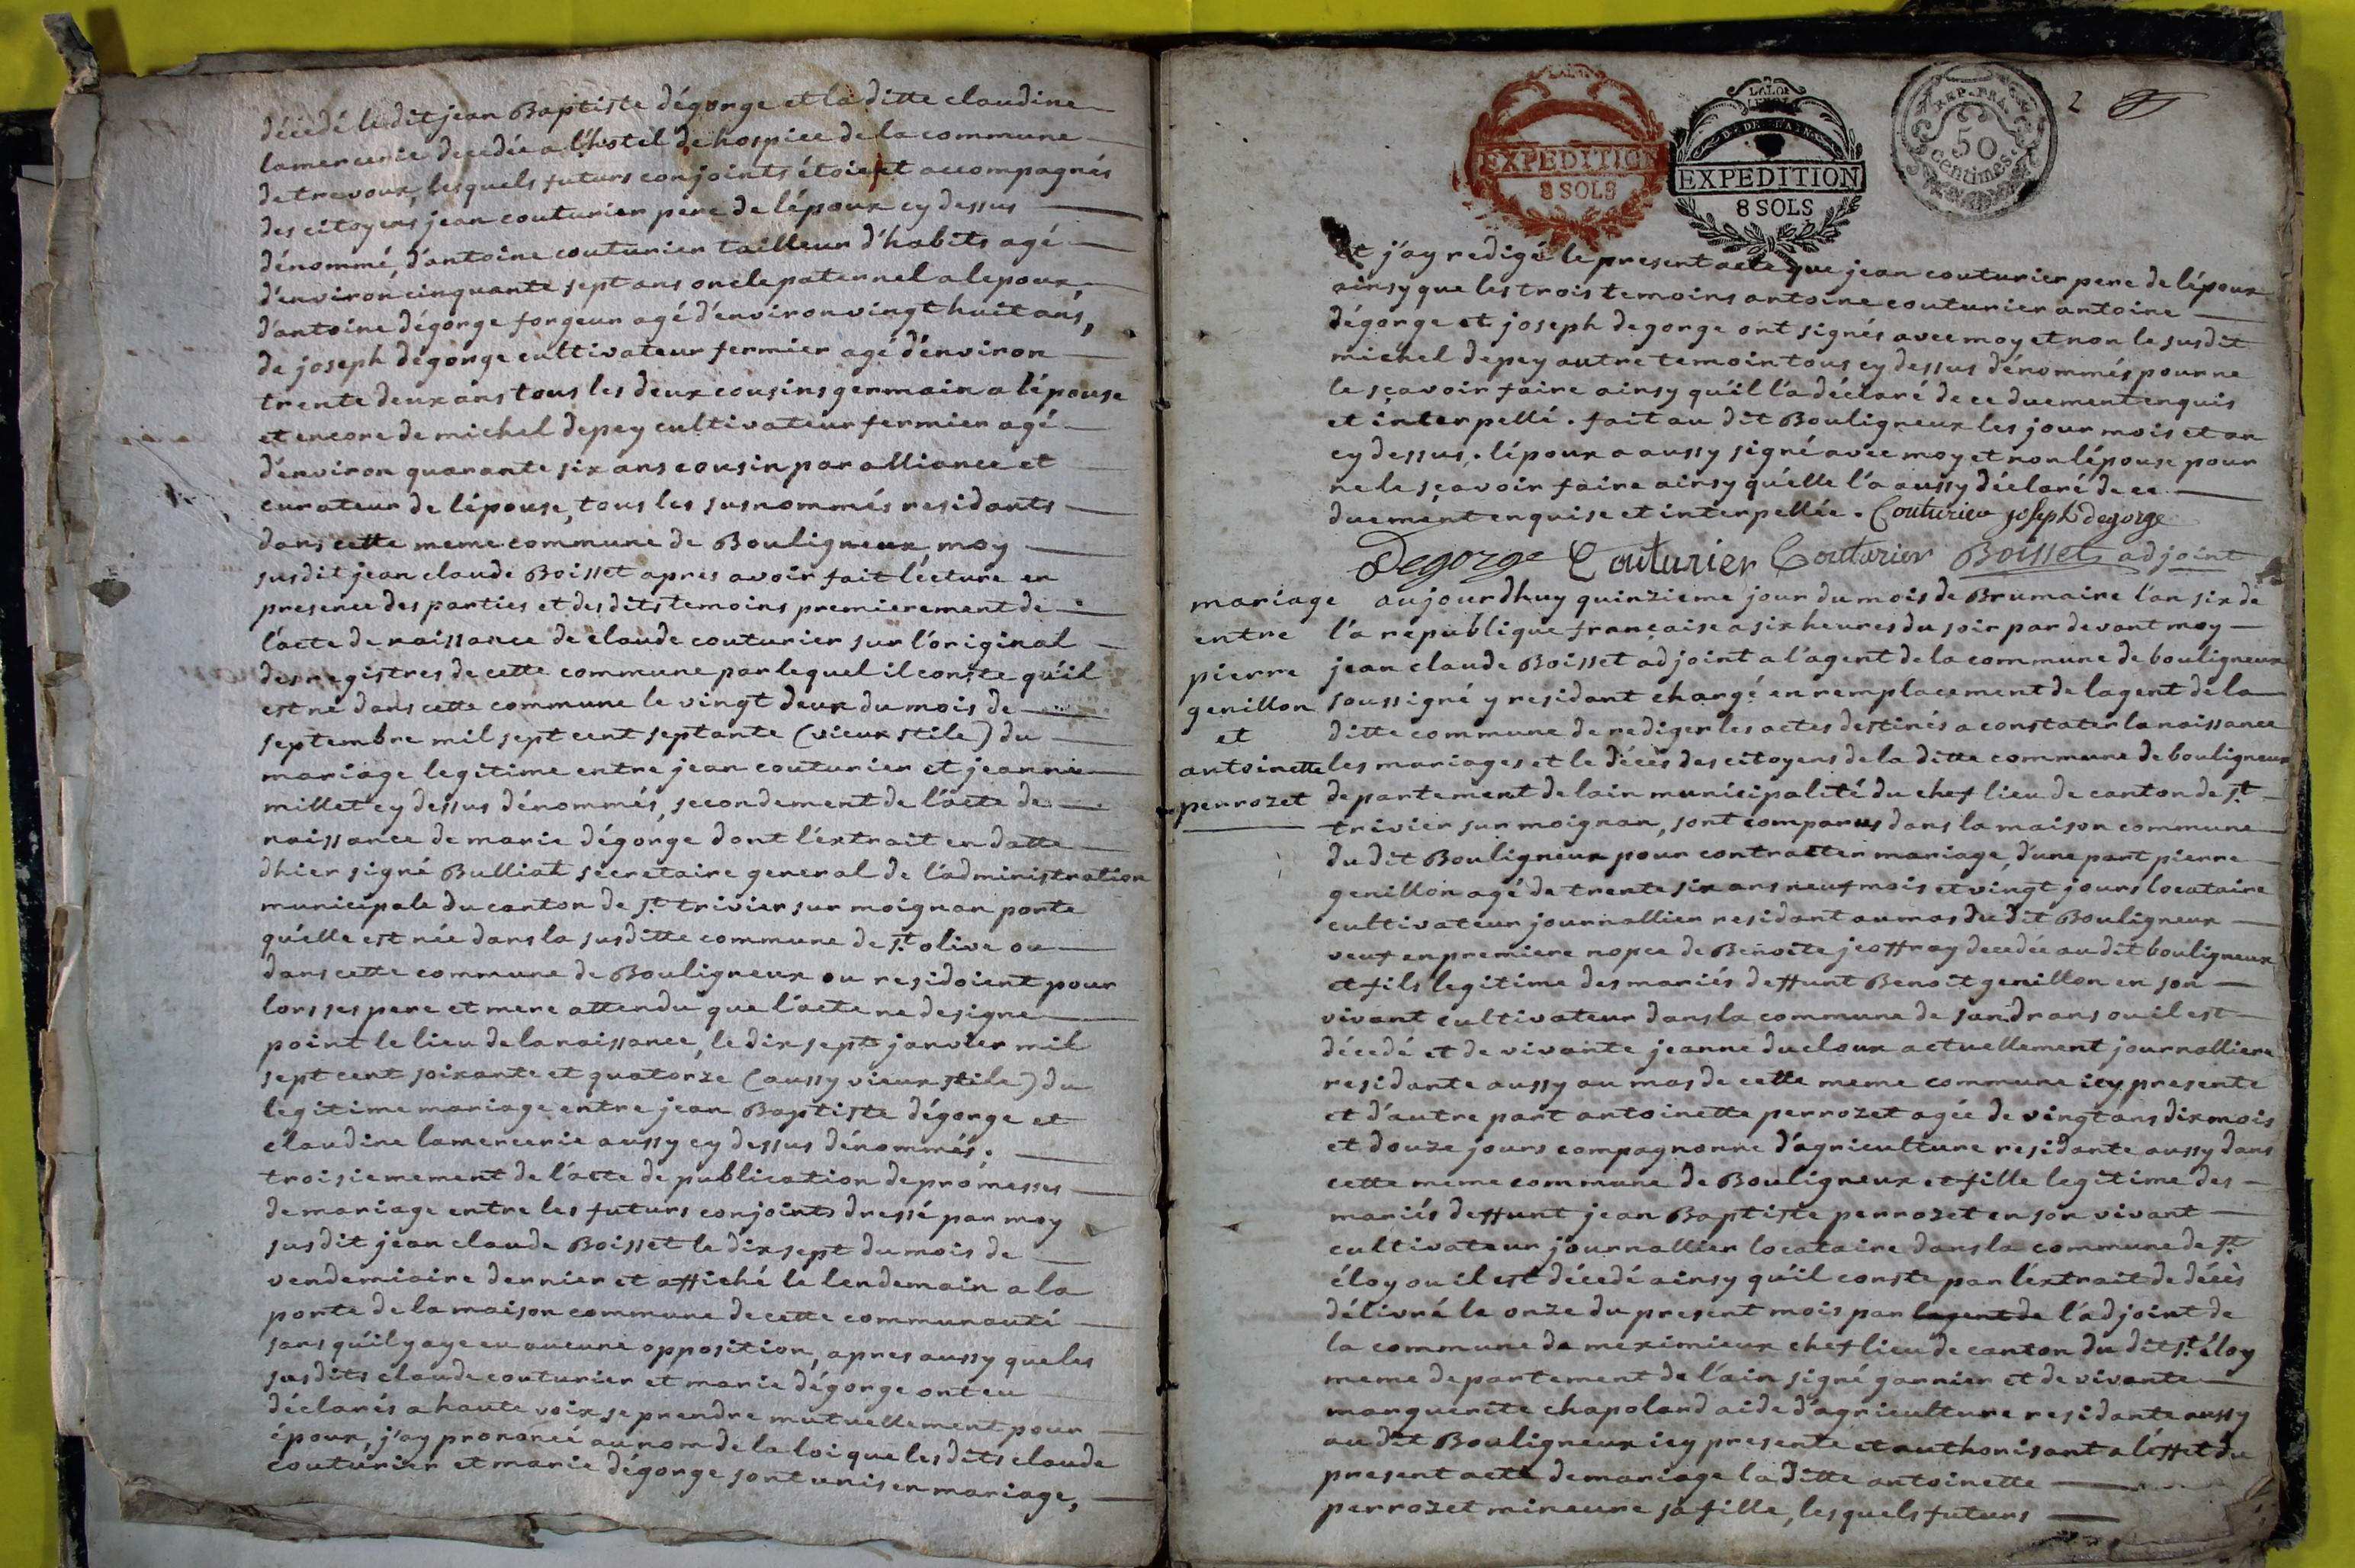 décedé le dit jean Baptiste dégorge et la ditte claudine
lamercerie decedée a l'hotel de hospice de la commune
de trevoux, lesquels futurs conjoints étoient accompagnés
des citoyens jean couturier pere de lépoux cy dessus
dénommé, d'antoine couturier tailleur d'habits agé
d'environ cinquante sept ans oncle paternel a lepoux,
d'antoine dégorge forgeur agé d'environ vingt huit ans,
de joseph dégorge cultivateur fermier agé d'environ
trente deux ans tous les deux cousins germain a lépouse
et encore de michel depey cultivateur fermier agé
d'environ quarante six ans cousin par alliance et
curateur de lépouse, tous les susnommés residants
dans cette meme commune de Bouligneux, moy
susdit jean claude Boisset apres avoir fait lécture en
presence des parties et des dits temoins premierement de
l'acte de naissance de claude couturier sur l'original
des registres de cette commune par lequel il conste qu'il
est né dans cette commune le vingt deux du mois de
septembre mil sept cent septante (vieux stile) du
mariage legitime entre jean couturier et jeanne
millet cy dessus dénommés, secondement de l'acte de
naissance de marie dégorge dont léxtrait en datte
dhier signé Bulliat secretaire general de l'administration
municipale du canton de st. trivier sur moignan porte
qu'elle est née dans la susditte commune de st. olive ou
dans cette commune de Bouligneux ou residoient pour
lors ses pere et mere attendu que l'acte ne designe
point le lieu de la naissance, le dix sept janvier mil
sept cent soixante et quatorze (aussy vieux stile) du
legitime mariage entre jean Baptiste dégorge et
claudine lamercerie aussy cy dessus dénommés,
troisiemement de l'acte de publication de promesses
de mariage entre les futurs conjoints dressé par moy
susdit jean claude Boisset le dix sept du mois de
vendemiaire dernier et affiché le lendemain a la
porte de la maison commune de cette communauté
sans qu'il y aye eu aucune opposition, apres aussy que les
susdits claude couturier et marie dégorge ont eu
déclarés a haute voix se prendre mutuellement pour
époux, j'ay prononcé au nom de la loi que les dits claude
couturier et marie dégorge sont unis en mariage,
EXPEDITION
8 SOLS
EXPEDITION
8 SOLS
REP. FRA.
50
centimes.
2
et j'ay redigé le present acte que jean couturier pere de lépoux
ainsy que les trois temoins antoine couturier antoine
dégorge et joseph degorge ont signés avec moy et non le susdit
michel depey autre temoin tous cy dessus dénommés pour ne
le sçavoir faire ainsy qu'il l'a déclaré de ce duement enquis
et interpellé. fait au dit Bouligneux les jour mois et an
cy dessus. lépoux a aussy signé avec moy et non lépouse pour
ne le sçavoir faire ainsy qu'elle l'a aussy déclaré de ce
duement enquise et interpellée. Couturier joseph degorge
Degorge Couturier Couturier Boisset adjoint
mariage
entre
pierre
genillon
et
antoinette
perrozet
aujourdhuy quinzieme jour du mois de Brumaire l'an six de
l'a republique française a six heures du soir par devant moy
jean claude Boisset adjoint a l'agent de la commune de bouligneux
soussigné y residant chargé en remplacement de lagent de la
ditte commune de rediger les actes destinés a constater la naissance
les mariages et le décès des citoyens de la ditte commune de bouligneux
departement de lain municipalité du chef lieu de canton de st.
trivier sur moignan, sont comparus dans la maison commune
du dit Bouligneux pour contracter mariage, d'une part pierre
genillon agé de trente six ans neuf mois et vingt jours locataire
cultivateur journallier residant au mas du dit Bouligneux
veuf en premiere nopce de Benoite jeoffray decedée au dit bouligneux
et fils legitime des mariés deffunt Benoit genillon en son
vivant cultivateur dans la commune de sandrans ou il est
décedé et de vivante jeanne ducloux actuellement journalliere
residante aussy au mas de cette meme commune icy presente
et d'autre part antoinette perrozet agée de vingt ans dix mois
et douze jours compagnonne d'agriculture residante aussy dans
cette meme commune de Bouligneux et fille legitime des
mariés deffunt jean Baptiste perrozet en son vivant
cultivateur journallier locataire dans la commune de st.
éloy ou il est décedé ainsy qu'il conste par léxtrait de décès
délivré le onze du present mois par lagent de l'adjoint de
la commune de meximieux chef lieu de canton du dit st. éloy
meme departement de l'ain signé garnier et de vivante
marguerite chapoland aide d'agriculture residante aussy
au dit Bouligneux icy presente et authorisant a léffet du
present acte de mariage la ditte antoinette
perrozet mineure sa fille, lesquels futurs